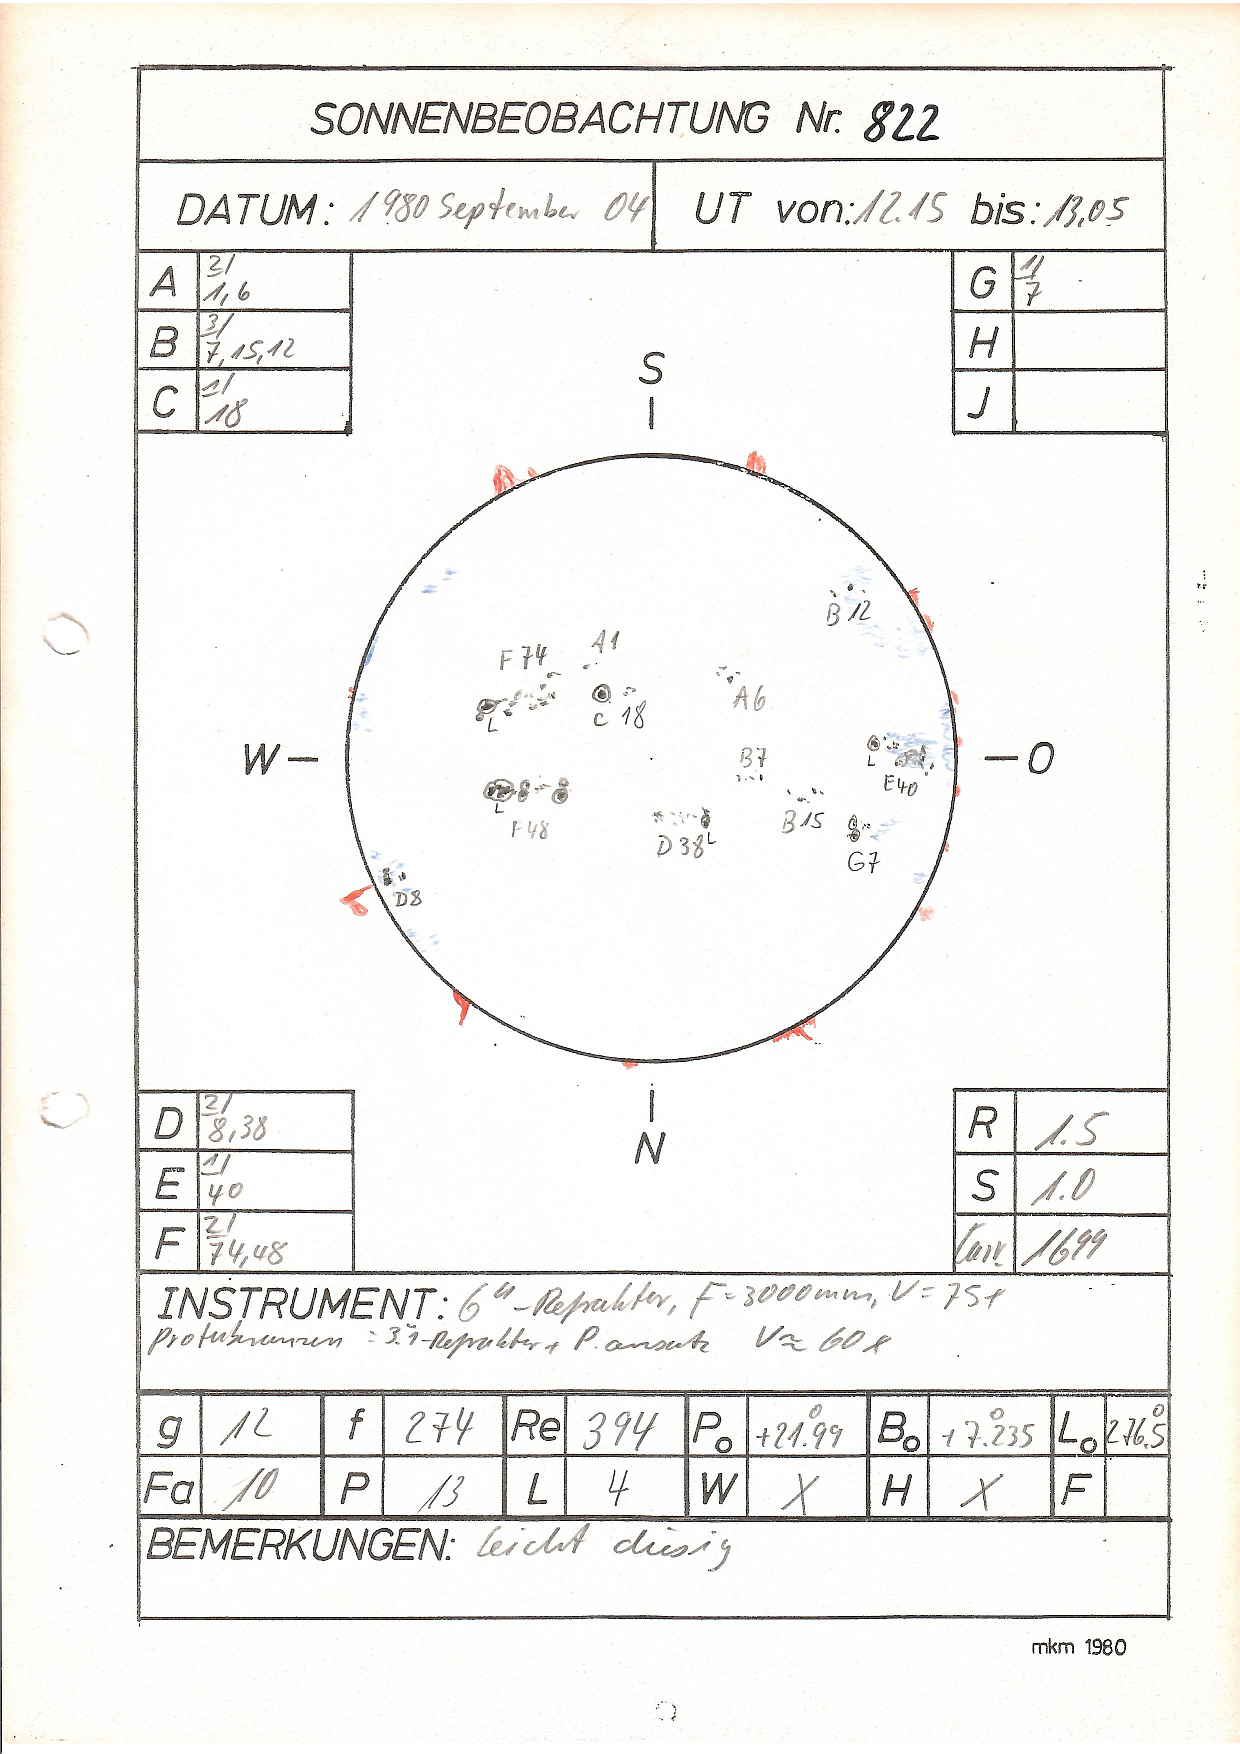 SONNENBEOBACHTUNG Nr. 822
DATUM: 1980 September 04 UT von: 12.15 bis: 13,05
A 2/ 1,6
B 3/ 7,15,12
C 1/ 18
G 1/ 7
H
J
S
B 12
A1
F 74
A6
C 18
L
W
O
B7
L
E40
L
F48
B15
D 38 L
G7
D8
N
D 2/ 8,38
E 1/ 40
F 2/ 74,48
R 1.5
S 1.0
1699
INSTRUMENT: 6"-Refraktor, F=3000mm, V=75x
Protuberanzen = 3."1-Refraktor + P.ansatz V≈ 60x
g 12 f 274 Re 394 Po +21.99° Bo +7.235° Lo 276.5°
Fa 10 P 13 L 4 W X H X F
BEMERKUNGEN: leicht diesig
mkm 1980